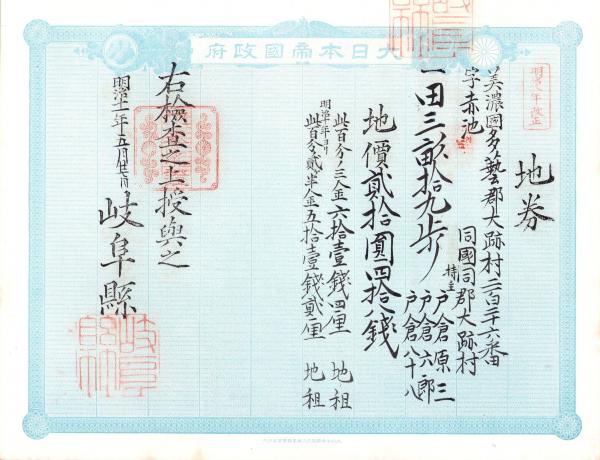 大日本帝國政府
明治九年改正
地券
美濃國多藝郡大跡村二百三十六番
字赤池
同國同郡大跡村
一田三畝拾九歩
持主
戸倉原三
戸倉六郎
戸倉八十八
地價貳拾圓四拾八錢
此百分ノ三金六拾壹錢四厘 地租
明治十年ヨリ
此百分ノ貳半金五拾壹錢貳厘 地租
右檢査之上授與之
明治十一年五月廿六日
岐阜縣